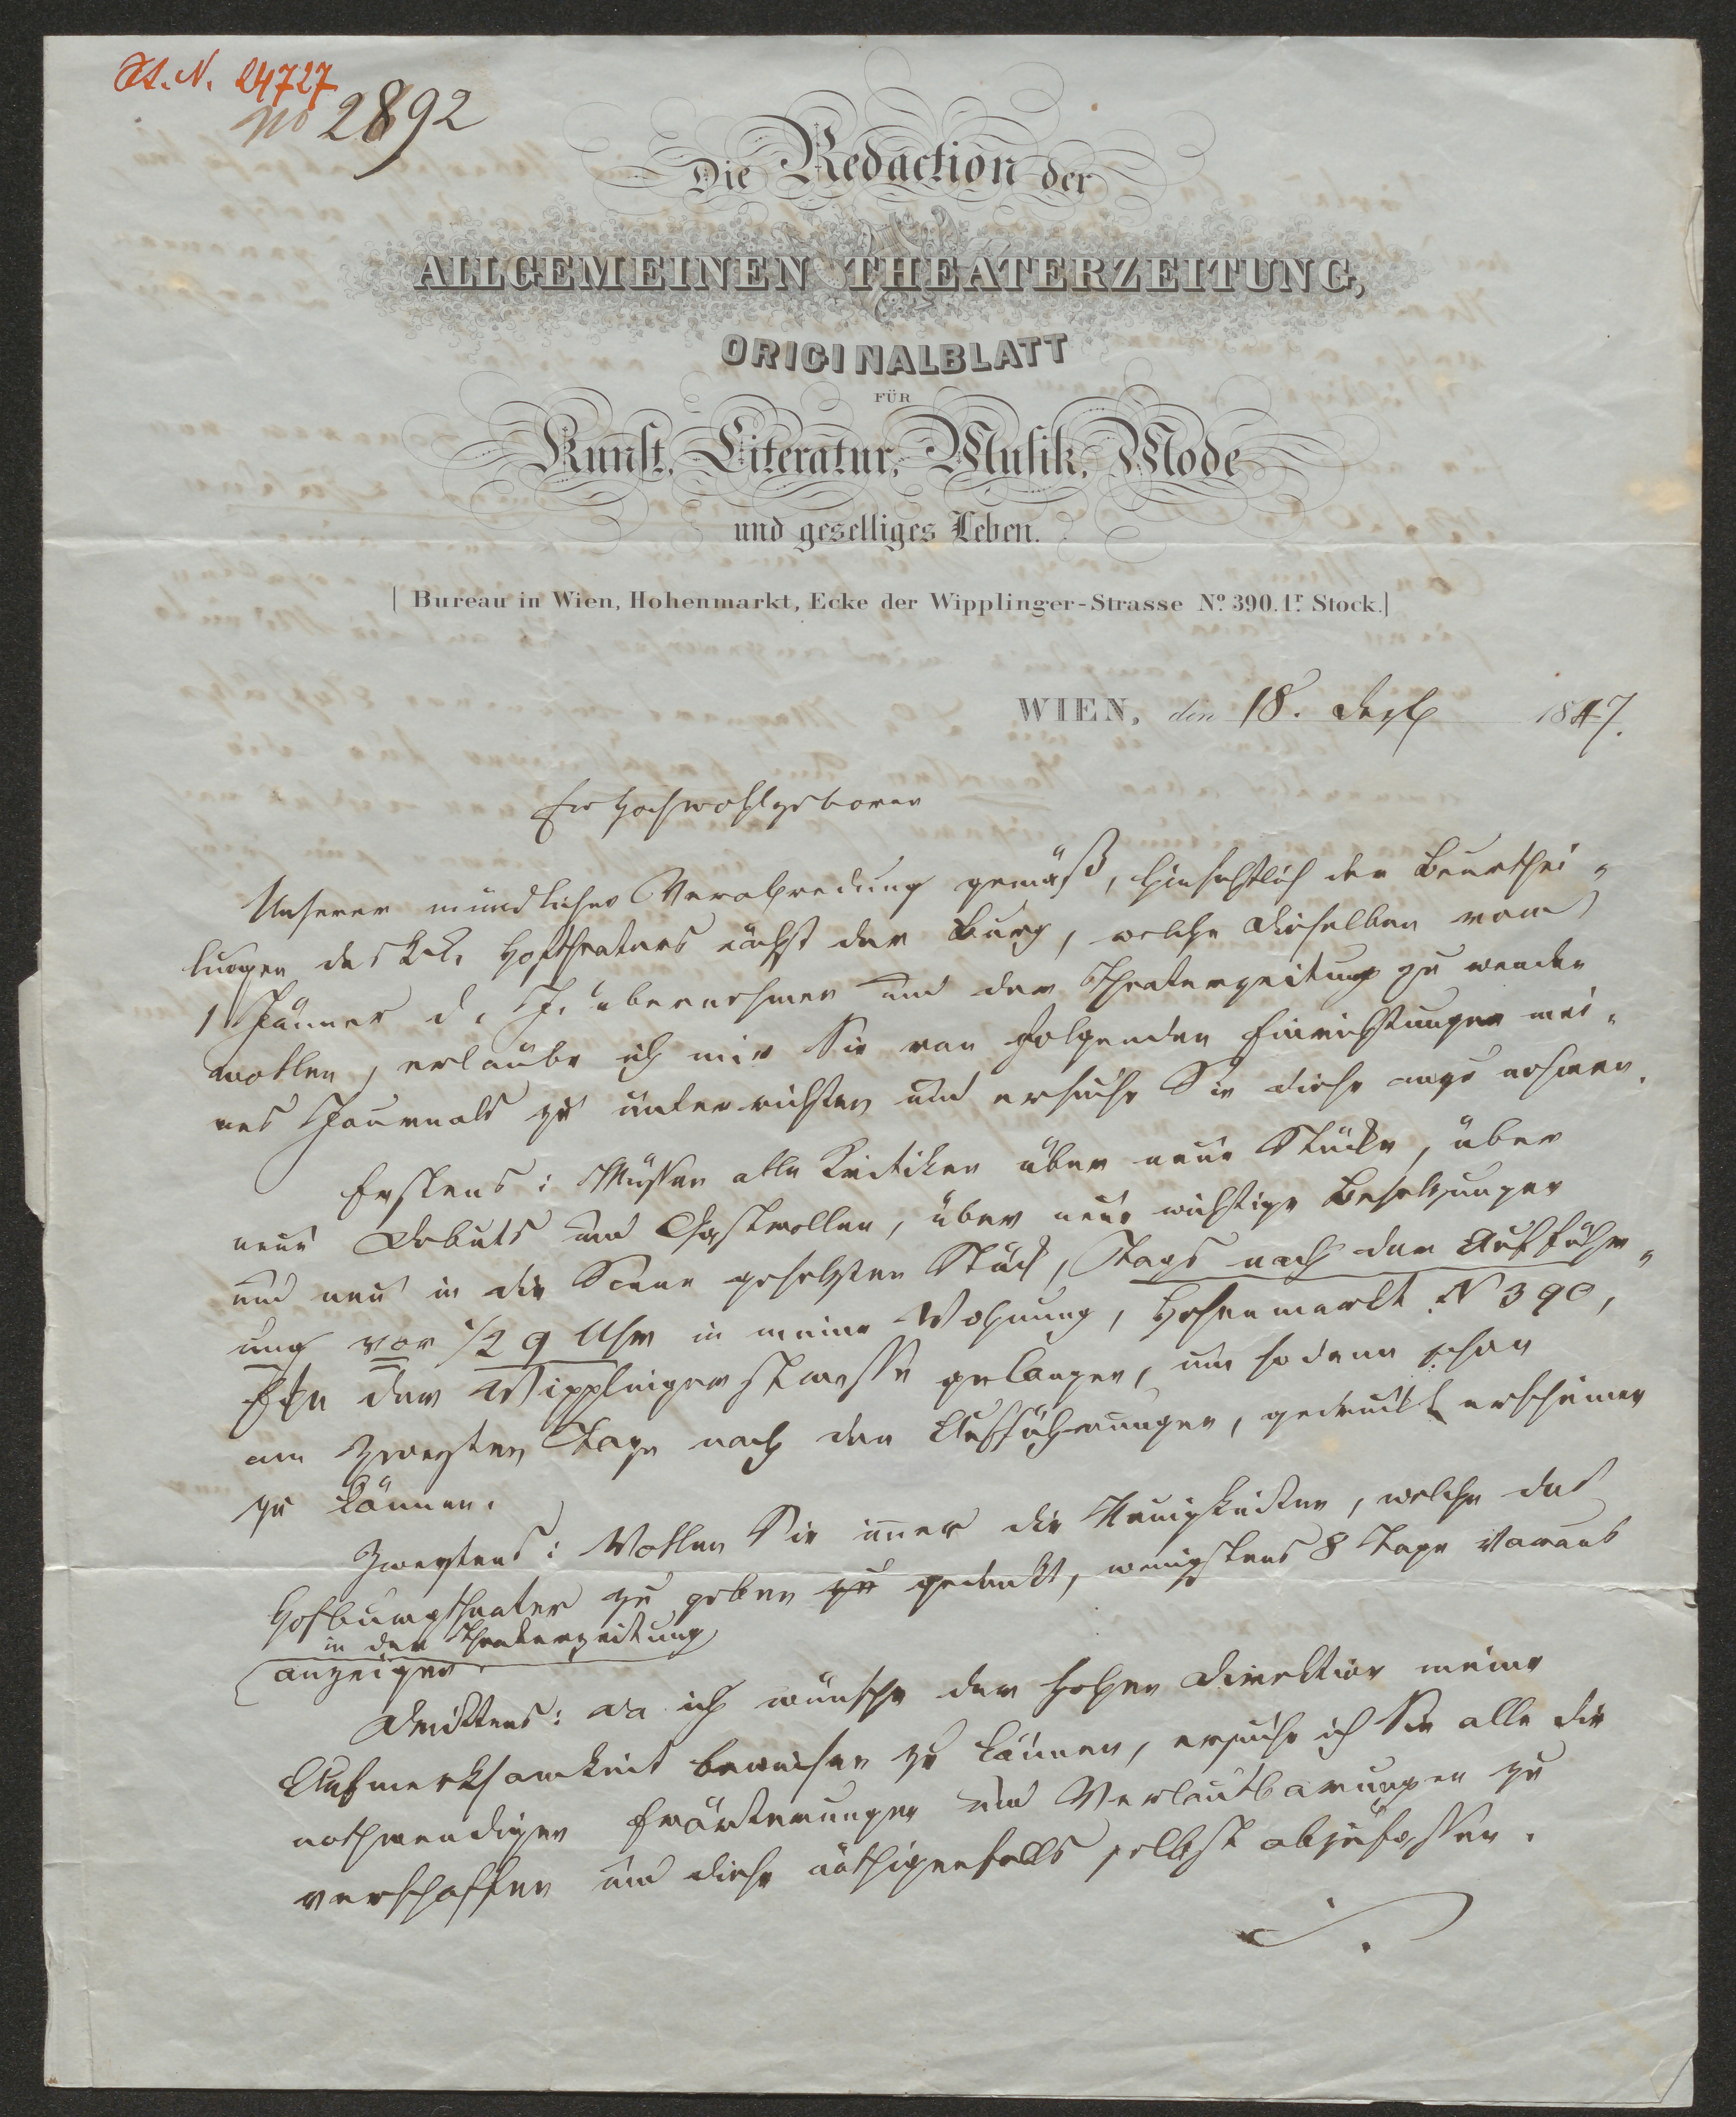 H.I.N. 24727
No 2892
Die Redaction der
ALLGEMEINEN THEATERZEITUNG,
ORIGINALBLATT
FÜR
Kunst, Literatur, Musik, Mode
und geselliges Leben.
| Bureau in Wien, Hohenmarkt, Ecke der Wipplinger-Strasse No. 390. 1r. Stock. |
WIEN, den 18. Dezb 1847.
Ew Hochwohlgeboren
Unserer mündlichen Verabredung gemäß, hinsichtlich der Beurthei-
lungen des k.k. Hoftheaters nächst der Burg, welche Dieselben vom
1 Jänner d. J. übernehmen und der Theaterzeitung zu wenden
wollen, erlaube ich mir Sie von folgenden Einrichtungen mei-
nes Journals zu unterrichten und ersuche Sie diese anzunehmen.
Erstens: Müssen alle Kritiken über neue Stücke, über
neue Debuts und Gastrollen, über neue wichtige Besetzungen
und neu in die Scene gesetzten Stück, Tags nach der Aufführ-
ung vor 1/2 9 Uhr in meine Wohnung, Hohenmarkt N 390,
Eke der Wipplingerstrasse gelangen, um sodann schon
am zweyten Tage nach den Aufführungen, gedruckt erscheinen
zu können.
Zweytens: Wollen Sie immer die Neuigkeiten, welche das
Hofburgtheater zu geben zu gedenkt, wenigstens 8 Tage voraus
in der Theaterzeitung
anzeigen.
Drittens: Da ich wünsche der hohen Direktion meine
Aufmerksamkeit beweisen zu können, ersuche ich Sie alle die
nothwendigen Erörterungen und Verlautbarungen zu
verschaffen und diese nöthigenfalls selbst abzufassen.